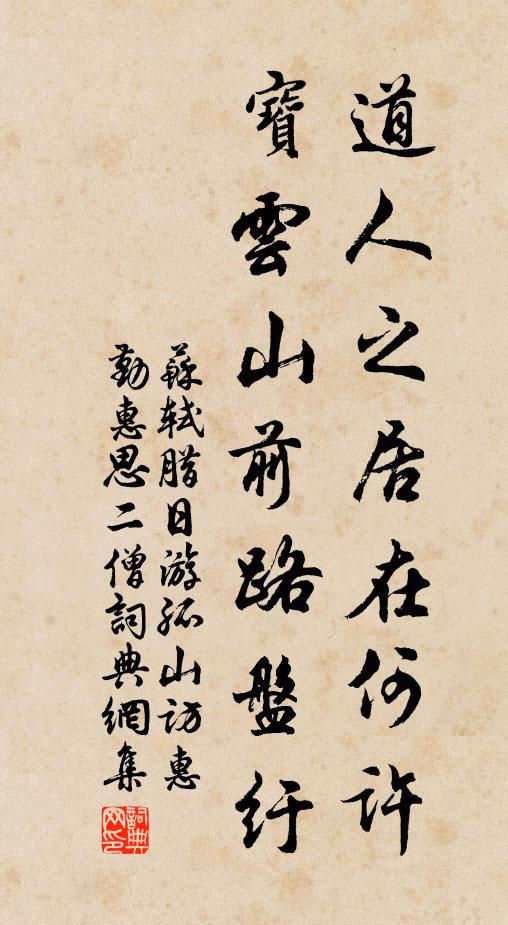 道人之居在何許
寶雲山前路盤紆
蘇軾腊日游孤山訪惠
勤惠思二僧詞典網集
詞典
网印